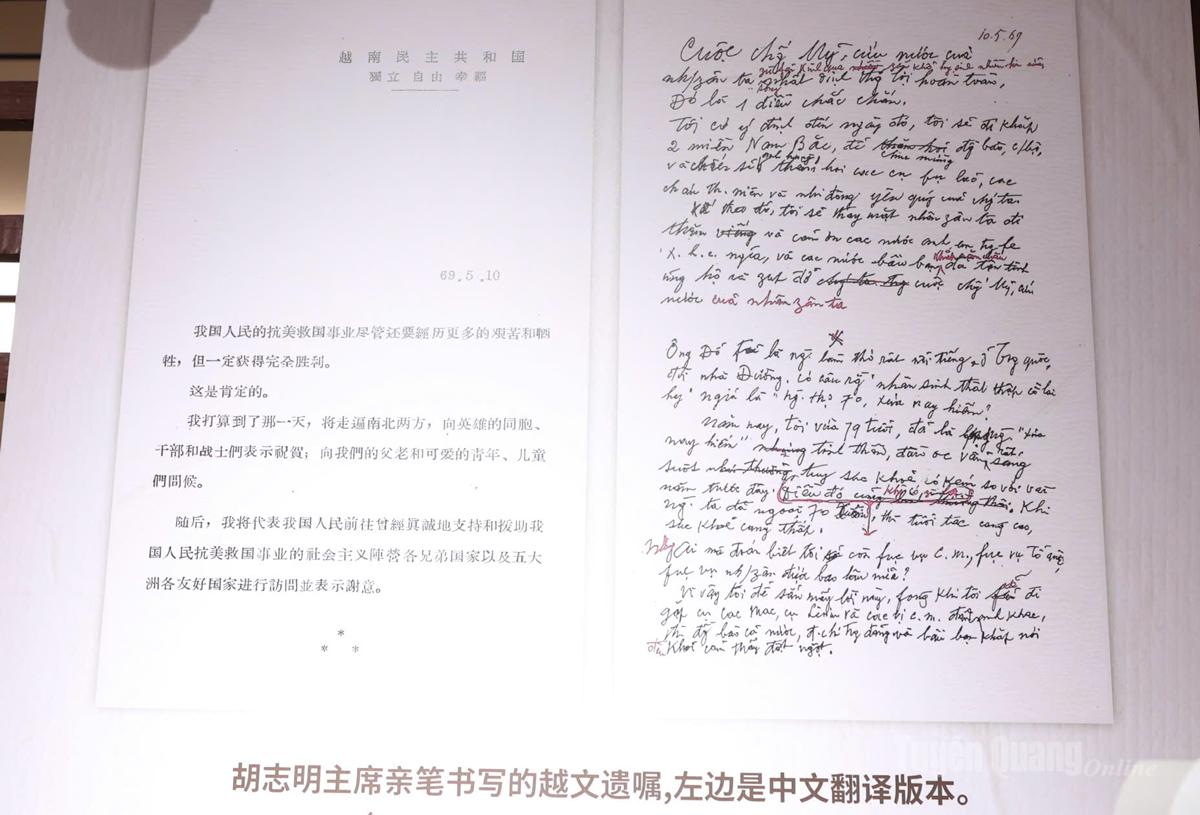 越南民主共和国
獨立 自由 幸福
69.5.10
我国人民的抗美救国事业尽管还要經历更多的艰苦和牺
牲，但一定获得完全胜利。
这是肯定的。
我打算到了那一天，将走遍南北两方，向英雄的同胞、
干部和战士們表示祝賀；向我們的父老和可爱的青年、儿童
們問候。
随后，我将代表我国人民前往曾經眞誠地支持和援助我
国人民抗美救国事业的社会主义陣營各兄弟国家以及五大
洲各友好国家进行訪問並表示謝意。
*
* *
10.5.69
Cuộc chố Mỹ, cứu nước của
nh/zân ta nhất định thắng lợi hoàn toàn,
Đó là 1 điều chắc chắn.
Tôi có ý định đến ngày đó, tôi sẽ đi khắp
2 miền Nam Bắc, để thăm hỏi chúc mừng đg bào,
và chiến sĩ anh hùng, thăm hỏi các cụ fụ lão, các
cháu th. niên và nhi đồng yêu quý của chg ta.
Kế theo đó, tôi sẽ thay mặt nhân zân ta đi
thăm viếng và cám ơn các nước anh em
x. h. c. nghĩa, và các nước bầu bạn đã tận tình
ủng hộ và zúp đỡ cuộc chố Mỹ, cứu
nước của nhân zân ta
Ông Đỗ Fủ là ng làm thơ rất nổi tiếng, ở Trg quốc,
đời nhà Đường. Có câu rg "nhân sinh thất thập cổ lai
hy" nghĩa là "ng thọ 70, xưa nay hiếm"
Năm nay, tôi vừa 79 tuổi, đã là "xưa
nay hiếm" tinh thần, đầu óc vẫn rất sáng
suốt, tuy sức khoẻ có kém so với vài
năm trước đây. Điều đó cũng Khi
ng ta đã ngoài 70 xuân, thì tuổi tác càng cao,
sức khoẻ càng thấp.
Ai mà đoán biết tôi còn fục vụ C.M., fục vụ Tổ quốc,
fục vụ nh/zân được bao lâu nữa?
Vì vậy tôi để sẵn mấy lời này, fòng khi tôi đi
gặp cụ Các Mác, cụ Lênin và các vị c.m. đàn anh khác,
thì đg bào cả nước, đ.chí trg đảng và bầu bạn khắp nơi
đều khỏi cảm thấy đột ngột.
Tuyên Quang Online
胡志明主席亲笔书写的越文遗嘱,左边是中文翻译版本。